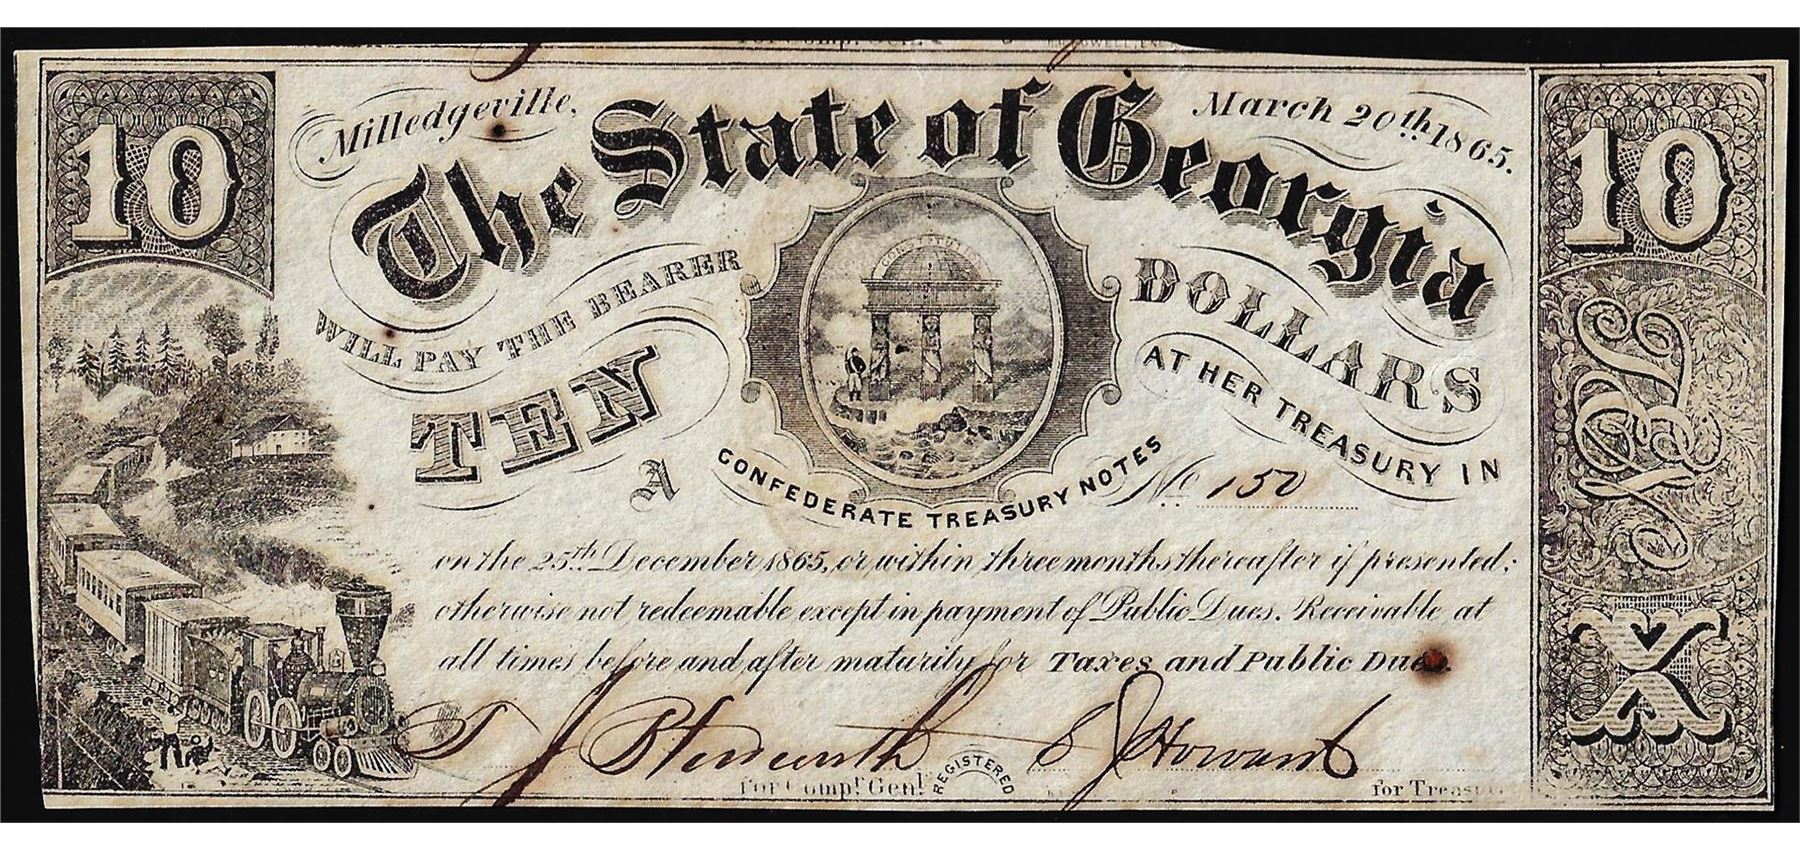 10
Milledgeville,
March 20th 1865.
10
The State of Georgia
WILL PAY THE BEARER
TEN
DOLLARS
AT HER TREASURY IN
CONFEDERATE TREASURY NOTES
A
No 150
on the 25th December 1865, or within three months thereafter if presented;
otherwise not redeemable except in payment of Public Dues. Receivable at
all times before and after maturity for Taxes and Public Dues.
Howard
For Compl. Genl.
REGISTERED
for Treasu
X